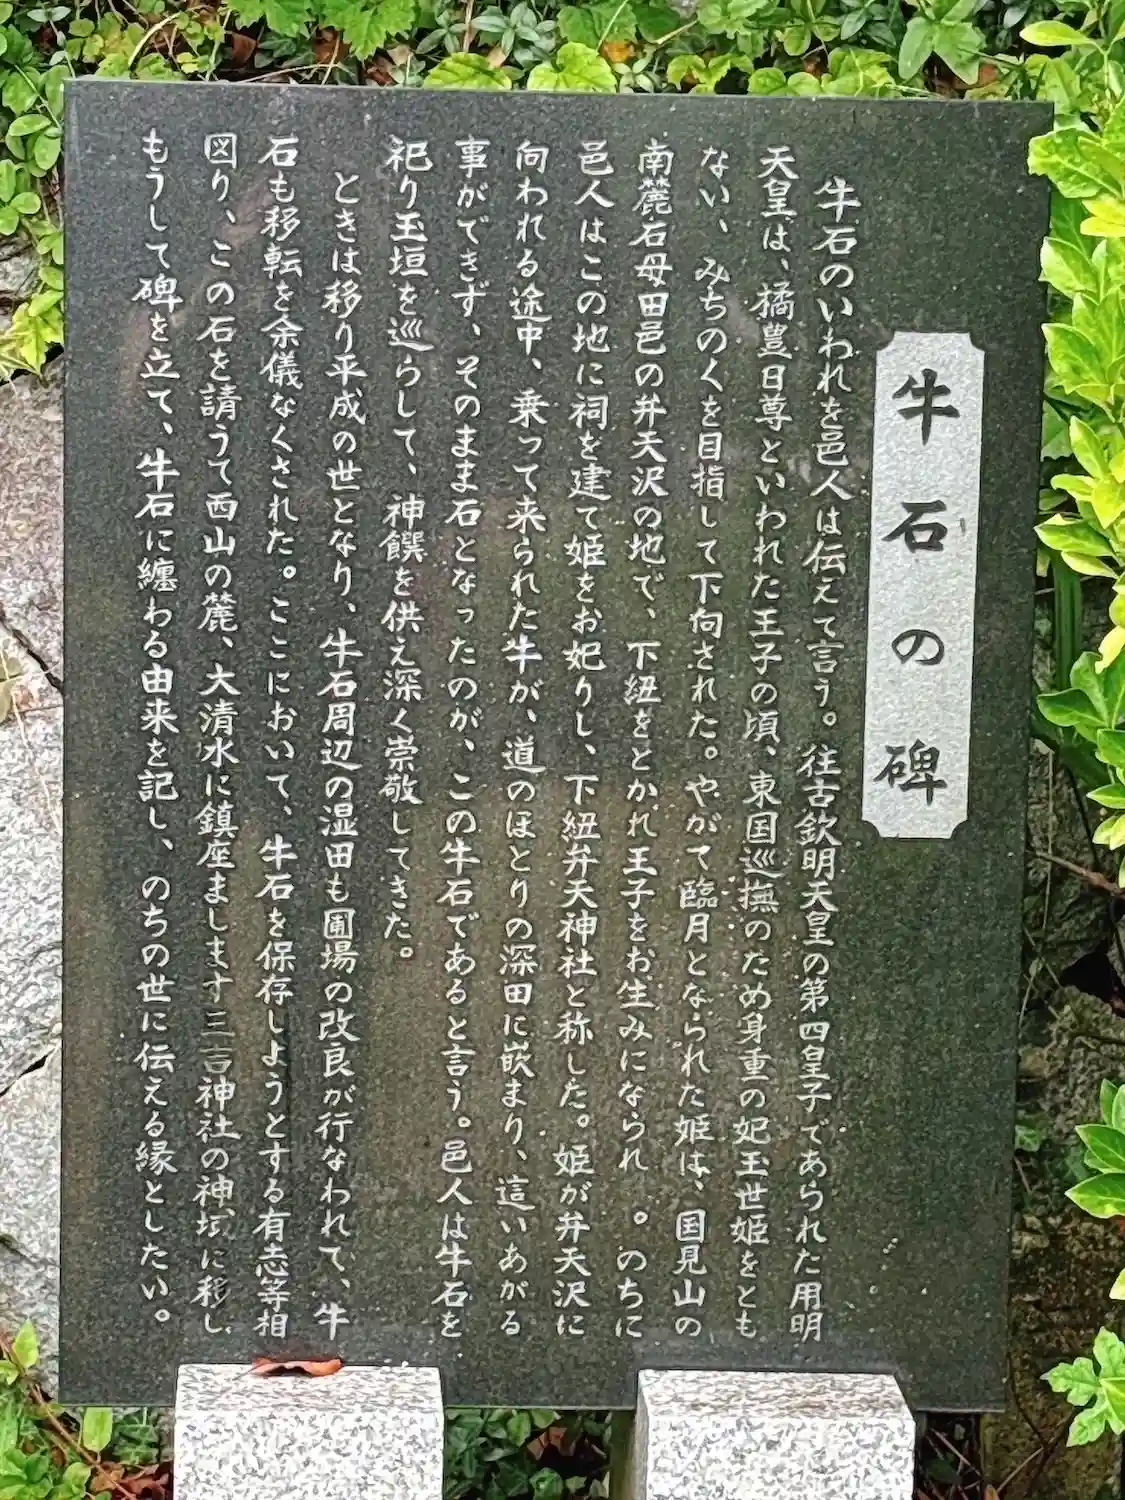 牛石の碑
牛石のいわれを邑人は伝えて言う。往古欽明天皇の第四皇子であられた用明
天皇は、橘豊日尊といわれた王子の頃、東国巡撫のため身重の妃玉世姫をとも
ない、みちのくを目指して下向された。やがて臨月となられた姫は、国見山の
南麓石母田邑の弁天沢の地で、下紐をとかれ王子をお生みになられ。のちに
邑人はこの地に祠を建て姫をお妃りし、下紐弁天神社と称した。姫が弁天沢に
向われる途中、乗って来られた牛が、道のほとりの深田に嵌まり、這いあがる
事ができず、そのまま石となったのが、この牛石であると言う。邑人は牛石を
祀り玉垣を巡らして、神饌を供え深く崇敬してきた。
ときは移り平成の世となり、牛石周辺の湿田も圃場の改良が行なわれて、牛
石も移転を余儀なくされた。ここにおいて、牛石を保存しようとする有志等相
図り、この石を請うて西山の麓、大清水に鎮座まします三吉神社の神域に移し
もうして碑を立て、牛石に纏わる由来を記し、のちの世に伝える縁としたい。